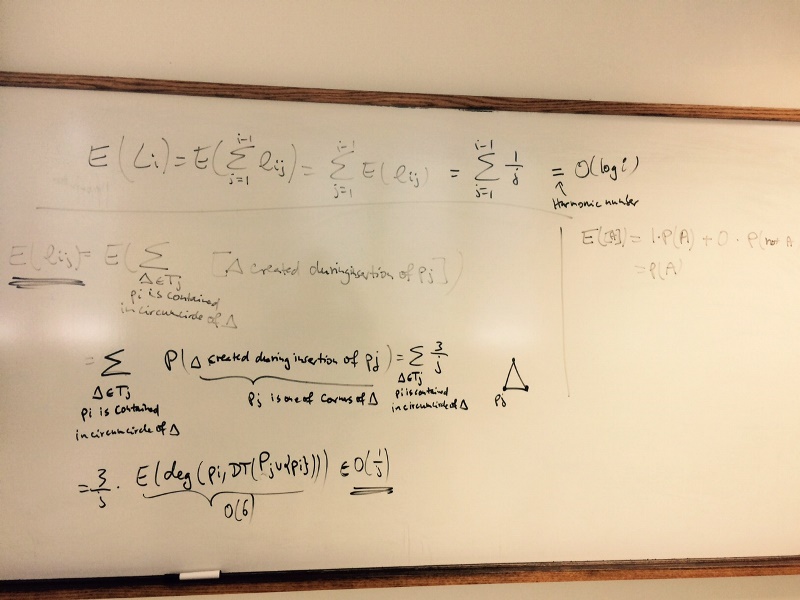 E(Li) = E(∑_{j=1}^{i-1} lij) = ∑_{j=1}^{i-1} E(lij) = ∑_{j=1}^{i-1} 1/j = O(log i)
↑
Harmonic number
E(lij) = E(∑ [Δ created during insertion of pj])
Δ∈Tj
pi is contained
in circumcircle of Δ
E[[A]] = 1·P(A) + 0·P(not A
= P(A)
= ∑ P(Δ created during insertion of pj) = ∑ 3/j
Δ∈Tj
pi is contained
in circumcircle of Δ
pj is one of corners of Δ
Δ∈Tj
pi is contained
in circumcircle of Δ
pj
= 3/j · E(deg(pi, DT(Pj∪{pi}))) ∈ O(1/j)
O(6)